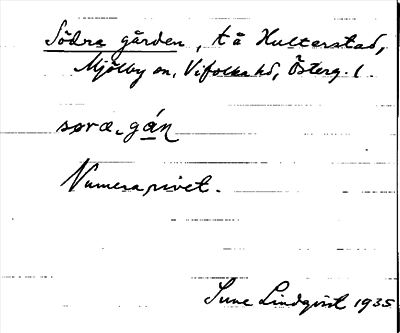 Södra gården, tå Hulterstad,
Mjölby sn, Vifolka hd, Österg. l.
søræ-gán
Numera rivet.
Sune Lindqvist 1935